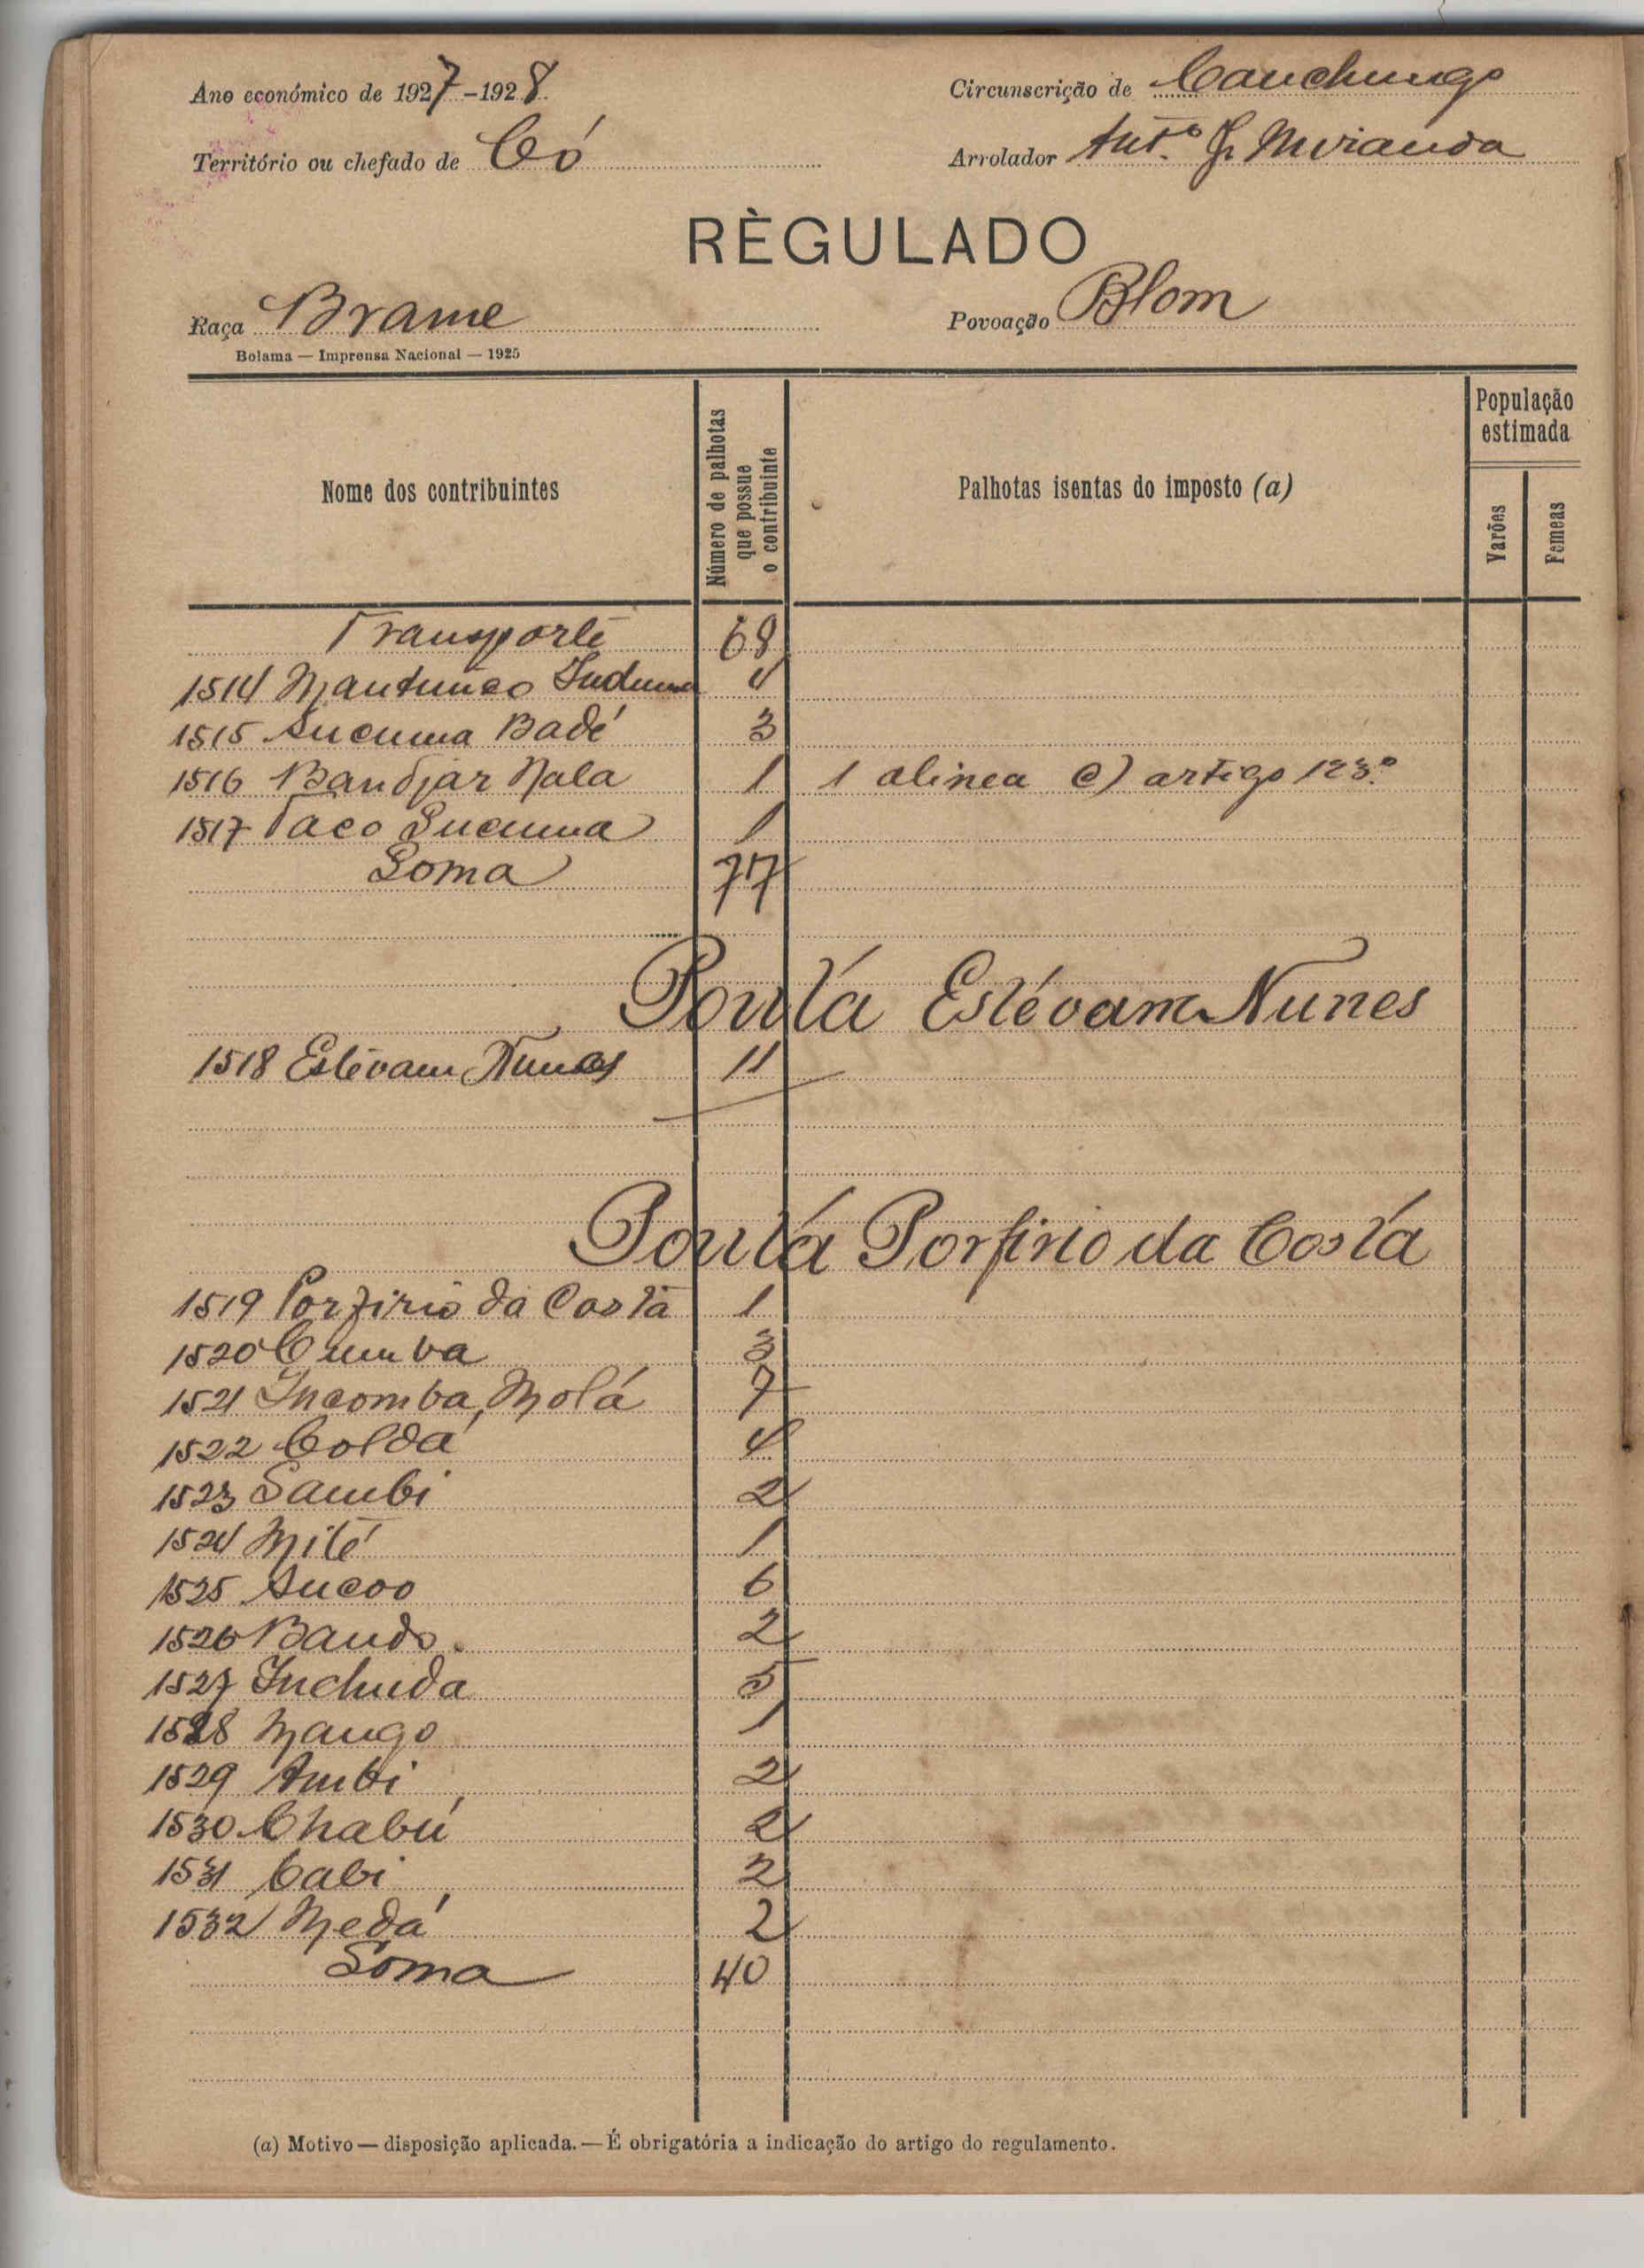 Ano económico de 1927-1928.
Circunscrição de Canchungo
Território ou chefado de Có
Arrolador Antº J. Miranda
RÈGULADO
Raça Brame
Povoação Blom
Bolama — Imprensa Nacional — 1925
Nome dos contribuintes
Número de palhotas que possue o contribuinte
Palhotas isentas do imposto (a)
População estimada
Varões
Femeas
Transporte 68
1514 Mantunco 4
1515 Sucuma Badé 3
1516 Bandjar Nala 1 1 alinea c) artigo 123º
1517 Taco Sucuma 1
Soma 77
Ponta Estévam Nunes
1518 Estévam Nunes 11
Ponta Porfirio da Costa
1519 Porfirio da Costa 1
1520 Cumba 3
1521 Incomba Molá 7
1522 Coldá 4
1523 Sambi 2
1524 Mité 1
1525 Sucoo 6
1526 Bando. 2
1527 Inchuda 5
1528 Mango 1
1529 Ambi 2
1530 Chabú 2
1531 Cabi 2
1532 Medá 2
Soma 40
(a) Motivo — disposição aplicada. — É obrigatória a indicação do artigo do regulamento.